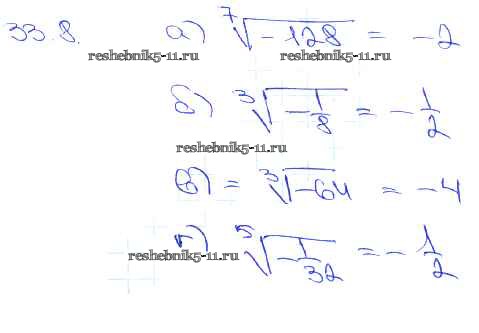 33.8. а) ⁷√-128 = -2
reshebnik5-11.ru reshebnik5-11.ru
б) ³√-1/8 = -1/2
reshebnik5-11.ru
в) = ³√-64 = -4
г) ⁵√-1/32 = -1/2
reshebnik5-11.ru